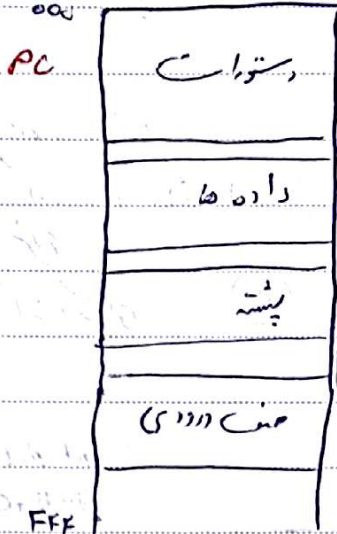 000
PC
دستورات
داده ها
پشته
صف ورودی
FFF